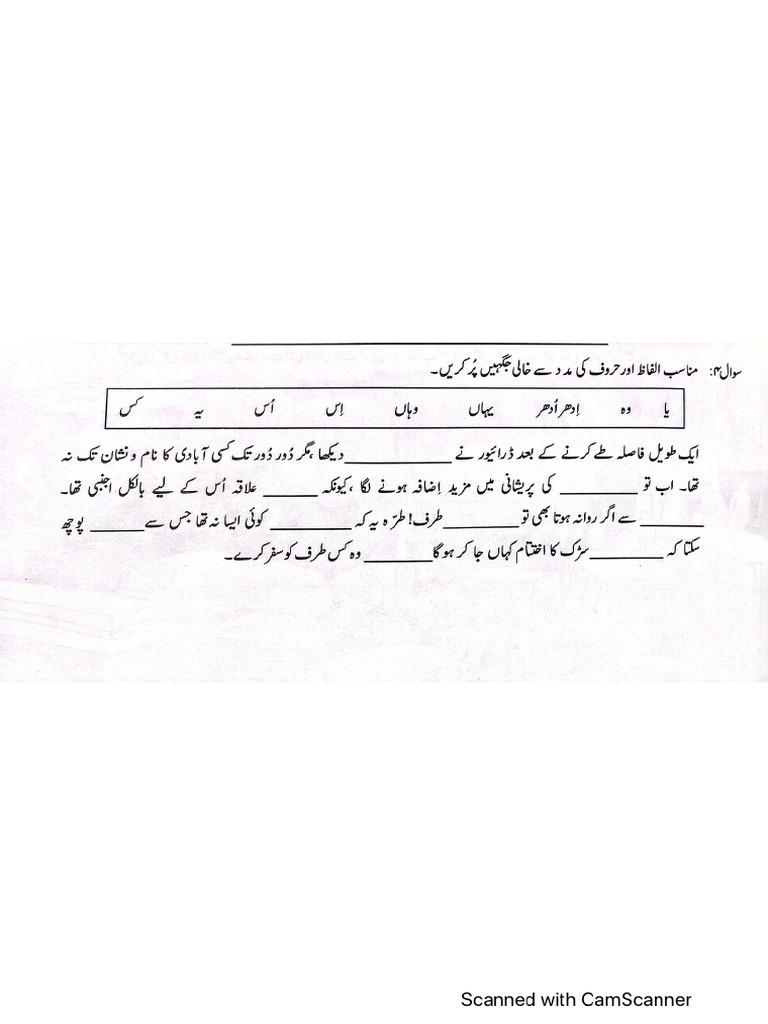 سوال ۴: مناسب الفاظ اور حروف کی مدد سے خالی جگہیں پُر کریں۔
یا وہ اِدھر اُدھر یہاں وہاں اِس اُس یہ کس
ایک طویل فاصلہ طے کرنے کے بعد ڈرائیور نے __________ دیکھا، مگر دُور دُور تک کسی آبادی کا نام و نشان تک نہ
تھا۔ اب تو __________ کی پریشانی میں مزید اِضافہ ہونے لگا، کیونکہ ________ علاقہ اُس کے لیے بالکل اجنبی تھا۔
________ سے اگر روانہ ہوتا بھی تو __________ طرف! طرّہ یہ کہ __________ کوئی ایسا نہ تھا جس سے _______ پوچھ
سکتا کہ __________ سڑک کا اختتام کہاں جا کر ہوگا __________ وہ کس طرف کو سفر کرے۔
Scanned with CamScanner